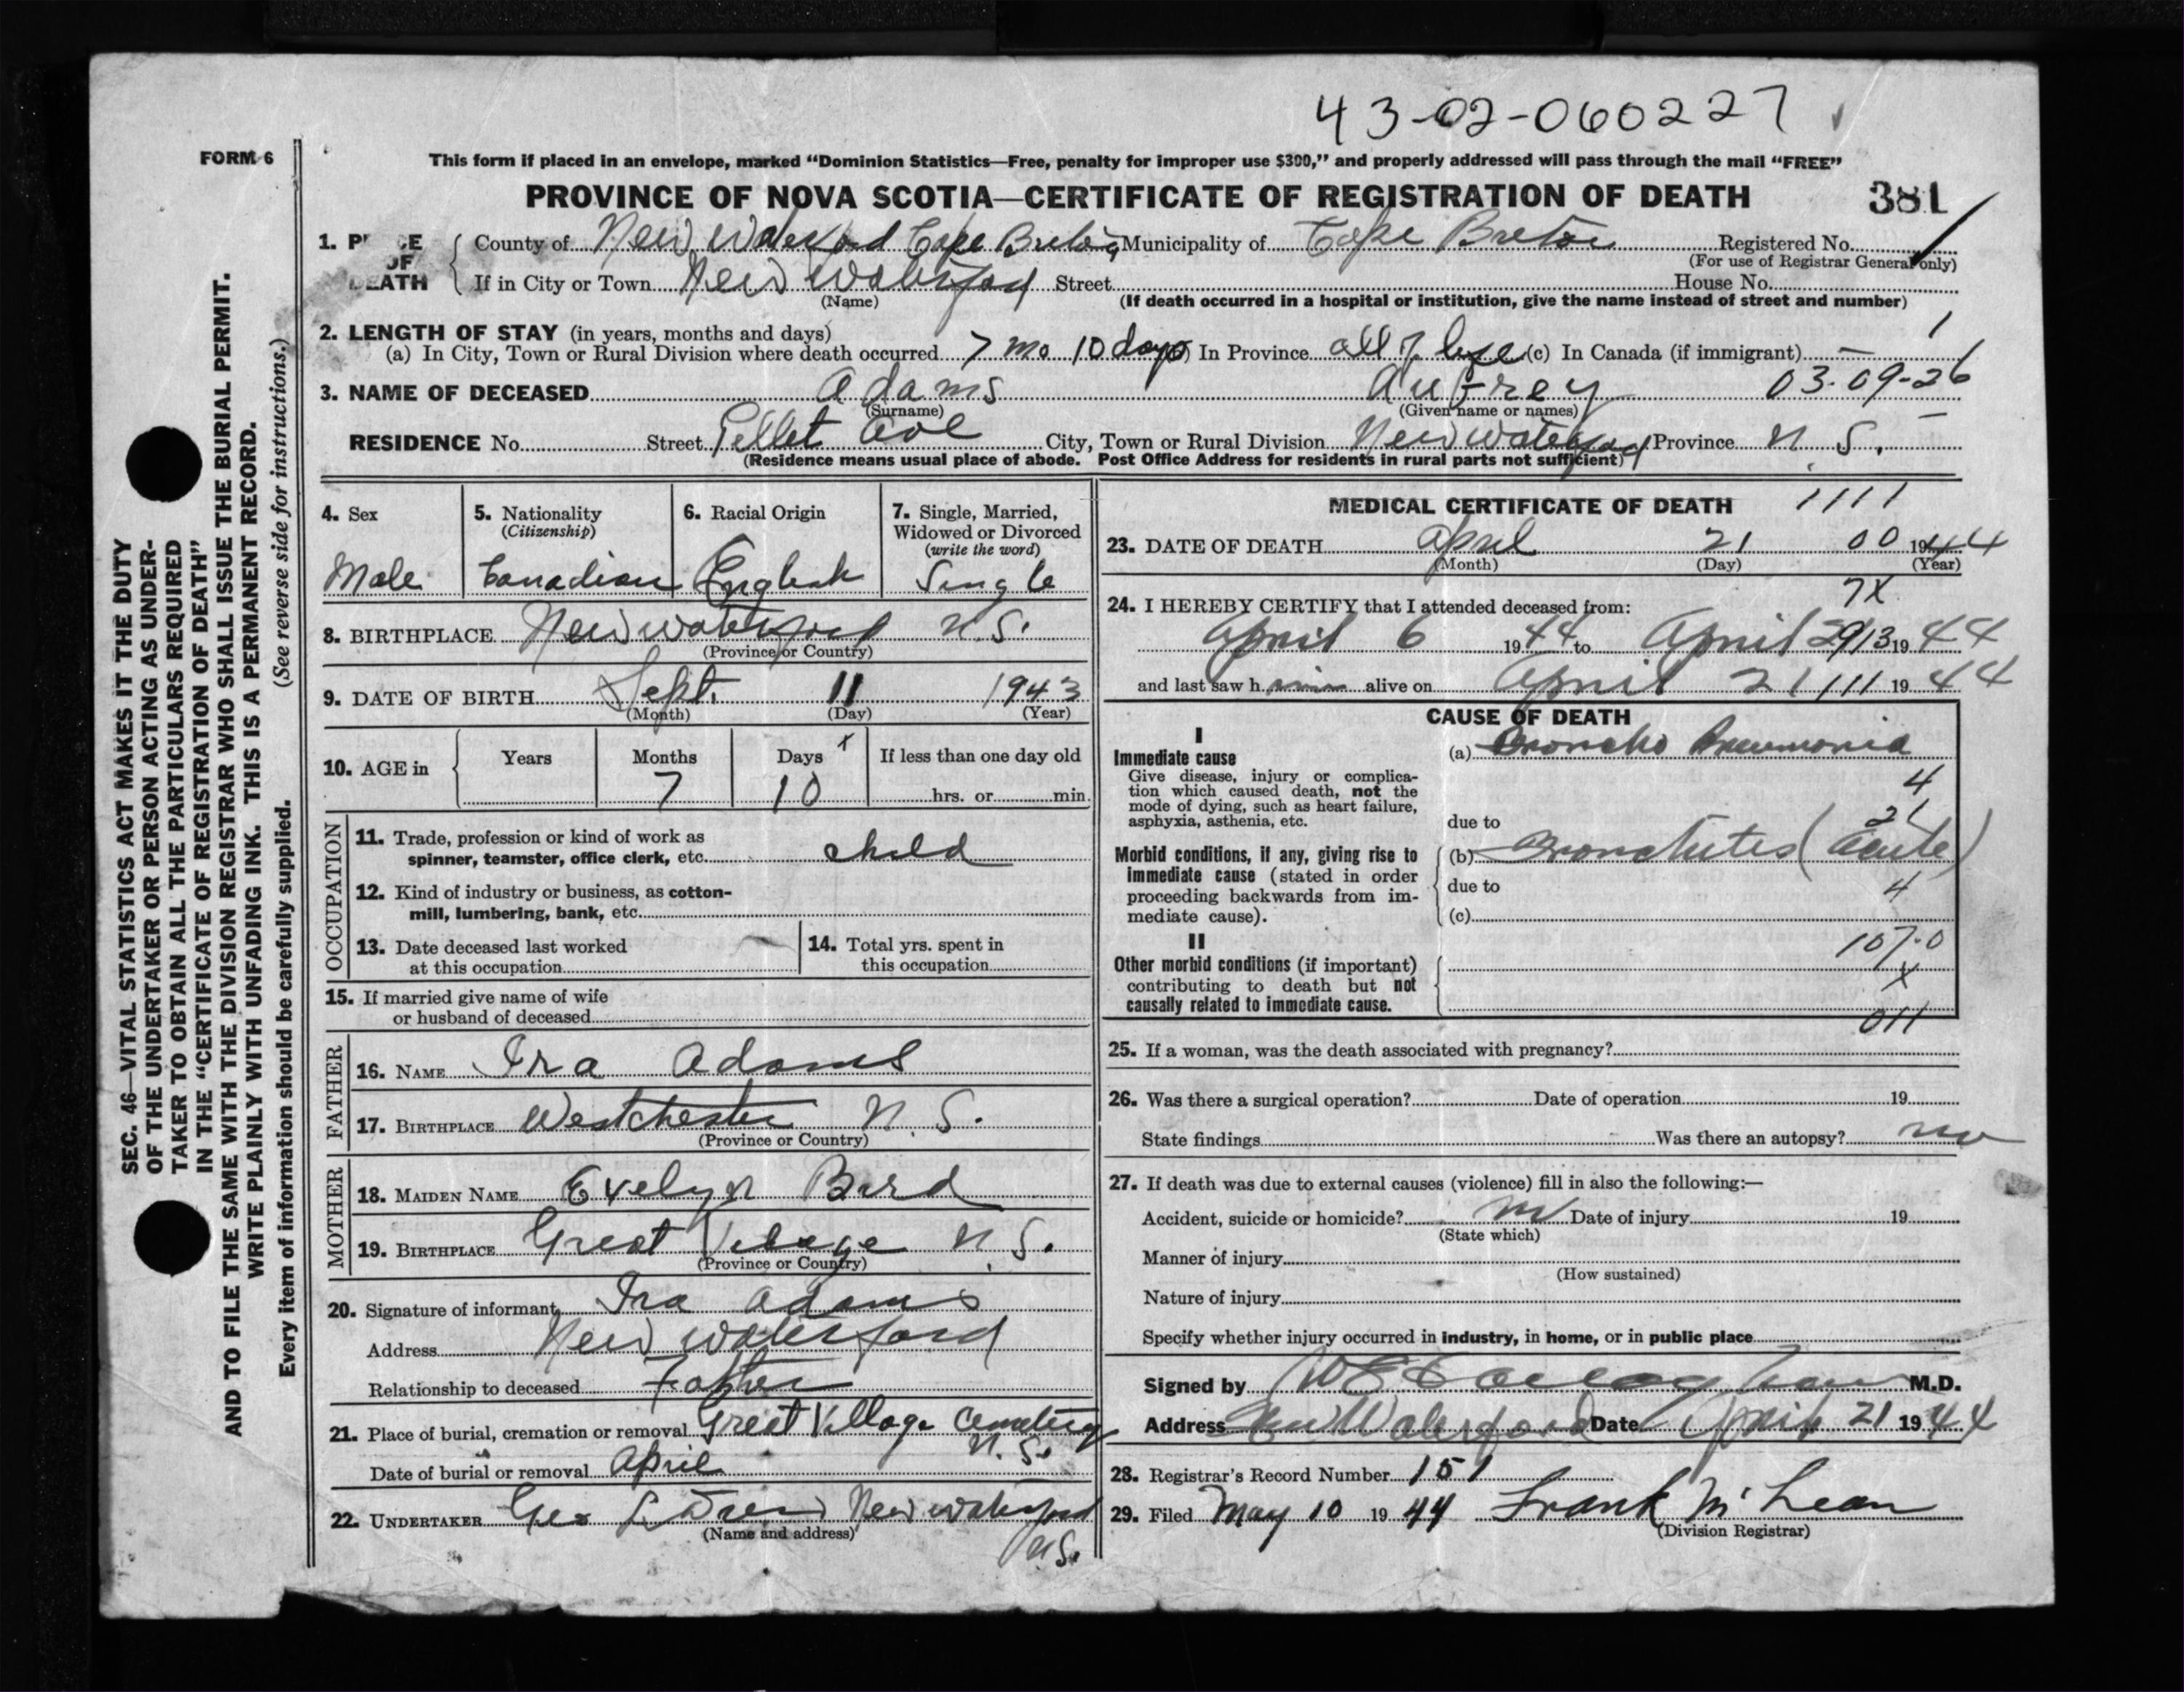 43-02-060227
FORM 6
This form if placed in an envelope, marked "Dominion Statistics—Free, penalty for improper use $300," and properly addressed will pass through the mail "FREE"
PROVINCE OF NOVA SCOTIA—CERTIFICATE OF REGISTRATION OF DEATH 381
1. PLACE OF DEATH County of New Waterford Cape Breton Municipality of Cape Breton Registered No.
(For use of Registrar General only)
If in City or Town New Waterford Street House No.
(Name) (If death occurred in a hospital or institution, give the name instead of street and number)
2. LENGTH OF STAY (in years, months and days) 1
(a) In City, Town or Rural Division where death occurred 7 mo 10 days In Province all of life (c) In Canada (if immigrant) —
3. NAME OF DECEASED Adams Aubrey 03-09-26
(Surname) (Given name or names)
RESIDENCE No. Street Ave City, Town or Rural Division New Waterford Province N. S.
(Residence means usual place of abode. Post Office Address for residents in rural parts not sufficient)
4. Sex Male
5. Nationality (Citizenship) Canadian
6. Racial Origin English
7. Single, Married, Widowed or Divorced (write the word) Single
8. BIRTHPLACE New Waterford N.S.
(Province or Country)
9. DATE OF BIRTH Sept. 11 1943
(Month) (Day) (Year)
10. AGE in Years Months Days If less than one day old
7 10 hrs. or min.
OCCUPATION
11. Trade, profession or kind of work as
spinner, teamster, office clerk, etc. child
12. Kind of industry or business, as cotton-
mill, lumbering, bank, etc.
13. Date deceased last worked
at this occupation
14. Total yrs. spent in
this occupation
15. If married give name of wife
or husband of deceased
FATHER
16. NAME Ira Adams
17. BIRTHPLACE Westchester N. S.
(Province or Country)
MOTHER
18. MAIDEN NAME Evelyn Bird
19. BIRTHPLACE Great Village N. S.
(Province or Country)
20. Signature of informant Ira Adams
Address New Waterford
Relationship to deceased Father
21. Place of burial, cremation or removal Great Village Cemetery
N. S.
Date of burial or removal April
22. UNDERTAKER Geo New Waterford
(Name and address)
N.S.
MEDICAL CERTIFICATE OF DEATH 1111
23. DATE OF DEATH April 21 00 1944
(Month) (Day) (Year)
7X
24. I HEREBY CERTIFY that I attended deceased from:
April 6 1944 to April 1944
and last saw h im alive on April 21 111 1944
CAUSE OF DEATH
I
Immediate cause
Give disease, injury or complica-
tion which caused death, not the
mode of dying, such as heart failure,
asphyxia, asthenia, etc.
(a) Broncho Pneumonia
4
21
due to
Morbid conditions, if any, giving rise to
immediate cause (stated in order
proceeding backwards from im-
mediate cause).
(b) Bronchitis (acute)
due to 4
(c)
107.0
II
Other morbid conditions (if important)
contributing to death but not
causally related to immediate cause.
X
011
25. If a woman, was the death associated with pregnancy?
26. Was there a surgical operation? Date of operation 19
State findings Was there an autopsy? no
27. If death was due to external causes (violence) fill in also the following:—
Accident, suicide or homicide? no Date of injury 19
(State which)
Manner of injury
(How sustained)
Nature of injury
Specify whether injury occurred in industry, in home, or in public place
Signed by M.D.
Address New Waterford Date April 21 1944
28. Registrar's Record Number 151
29. Filed May 10 1944 Frank McLean
(Division Registrar)
SEC. 46—VITAL STATISTICS ACT MAKES IT THE DUTY
OF THE UNDERTAKER OR PERSON ACTING AS UNDER-
TAKER TO OBTAIN ALL THE PARTICULARS REQUIRED
IN THE "CERTIFICATE OF REGISTRATION OF DEATH"
AND TO FILE THE SAME WITH THE DIVISION REGISTRAR WHO SHALL ISSUE THE BURIAL PERMIT.
WRITE PLAINLY WITH UNFADING INK. THIS IS A PERMANENT RECORD.
Every item of information should be carefully supplied. (See reverse side for instructions.)